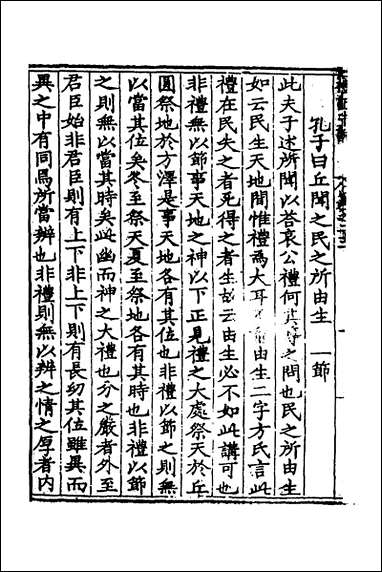 孔子曰丘聞之民之所由生 一節
此夫子述所聞以荅哀公禮何其尊之問也民之所由生
如云民生天地間惟禮爲大耳由生二字方氏言此
禮在民失之者死得之者生故云由生必不如此講可也
非禮無以節事天地之神以下正見禮之大處祭天於丘
圓祭地於方澤是事天地各有其位也非禮以節之則無
以當其位矣冬至祭天夏至祭地各有其時也非禮以節
之則無以當其時矣此幽而神之大禮也分之嚴者外至
君臣始非君臣則有上下非上下則有長幼其位雖異而
異之中有同焉所當辨也非禮則無以辨之情之厚者内